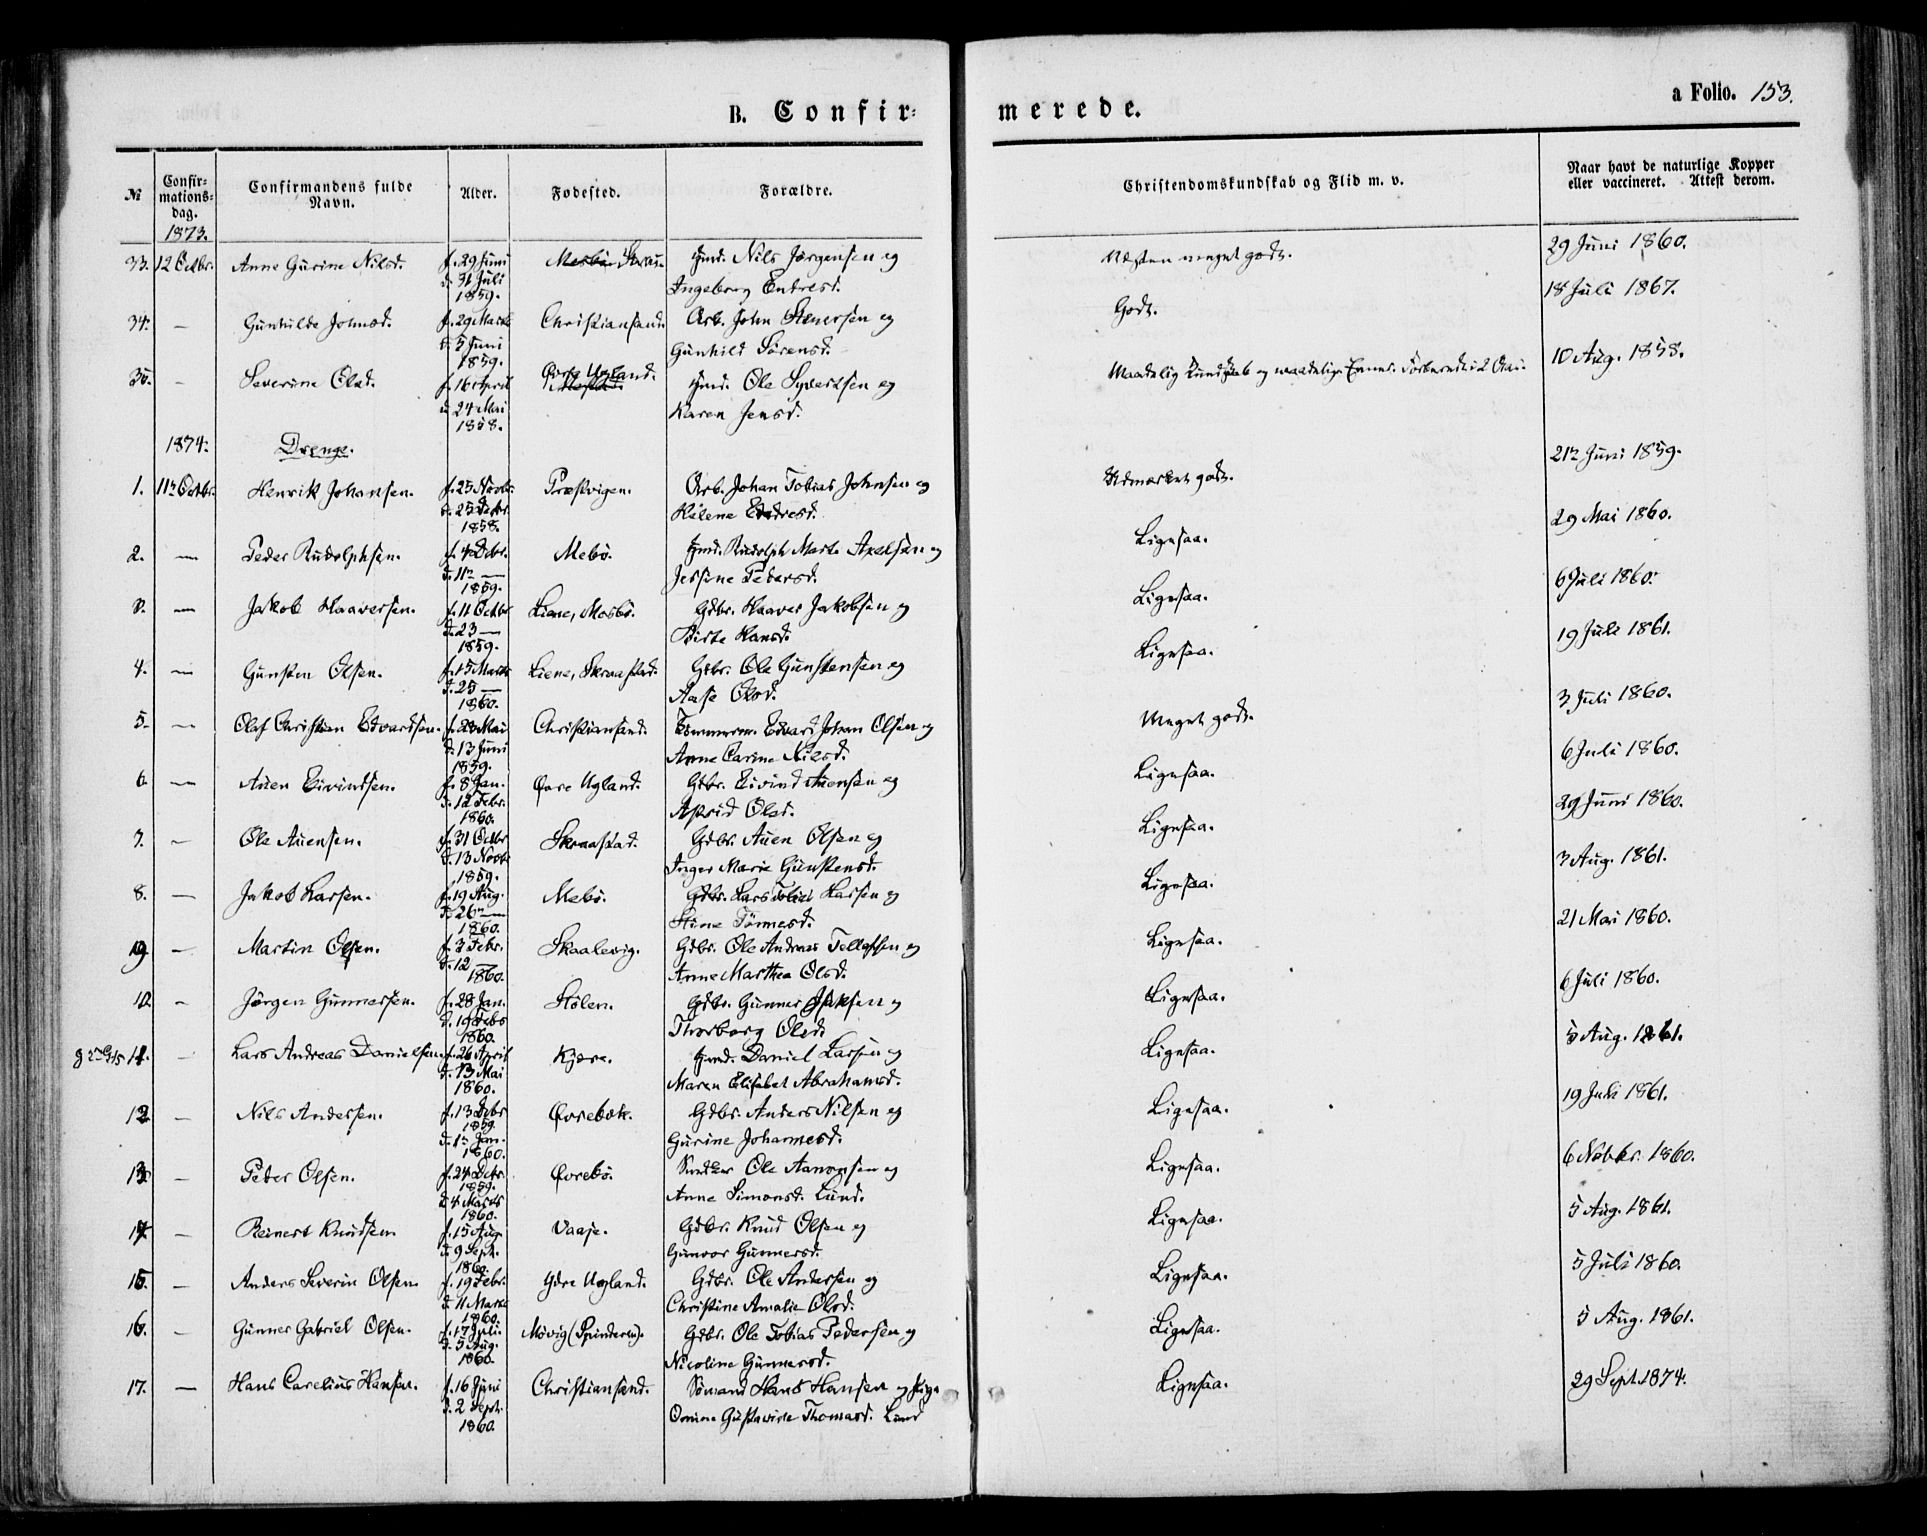 B. Confir-
merede.
a Folio. 153.
№
Confir-
mations-
dag.
1873.
Confirmandens fulde
Navn.
Alder.
Fødested.
Forældre.
Christendomskundskab og Flid m. v.
Naar havt de naturlige Kopper
eller vaccineret. Attest derom.
33. 12 Octbr. Anne Gurine Nilsd. f. 29 Juni Hmd. Nils Jørgensen og Næsten meget godt. 29 Juni 1860.
d. 31 Juli Ingeborg Entresd.
1859.
34. — Gunhilde Johnsd. f. 29 Marts Christiansand. Arb. John og Godt. 18 Juli 1867.
d. 5 Juni Gunhild Sørensd.
1859.
35. — Severine Olsd. f. 16 April Øvre Ugland. Hmd. Ole Syvertsen og Maadelig Kundskab og maadelige Evner. 10 Aug. 1858.
d. 24 Mai Karen Jensd.
1858.
1874. Drenge.
1. 11te Octbr. Henrik Johansen. f. 25 Novbr. Præstvigen. Arb. Johan Tobias Johnsen og Udmærket godt. 21de Juni 1859.
d. 25 Decbr. Helene Endresd.
1858.
2. — Peder Rudolphsen. f. 4 Mebø. Hmd. Rudolph Axelsen og Ligesaa. 29 Mai 1860.
d. 11te — Jessine Pedersd.
1859.
3. — Jakob Haaversen. f. 11 Octbr Liene, Mosbø. Gdbr. Haaver Jakobsen og Ligesaa. 6 Juli 1860.
d. 23 — Birte Hansd.
1859.
4. — Gunsten Olsen. f. 15 Marts Liene, Skraastad. Gdbr. Ole Gunstensen og Ligesaa. 19 Juli 1861.
d. 25 — Aase Olsd.
1860.
5. — Olaf Christian Edvardsen. f. 28 Mai Christiansand. Tømmerm. Edvard Johan Olsen og Meget godt. 3 Juli 1860.
d. 13 Juni Anne Carine Nilsd.
1859.
6. — Auen Eivindsen. f. 8 Jan. Øvre Ugland. Gdbr. Eivind Auensen og Ligesaa. 6 Juli 1860.
d. 12 Febr. Astrid Olsd.
1860.
7. — Ole Auensen. f. 31 Octbr Skraastad. Gdbr. Auen Olsen og Ligesaa. 29 Juni 1860.
d. 13 Novbr Inger Marie Gunstensd.
1859.
8. — Jakob Larsen. f. 19 Aug. Mebø. Gdbr. Lars Larsen og Ligesaa. 3 Aug. 1861.
d. 26de — Stine Tønnesd.
1860.
9 — Martin Olsen. f. 3 Febr. Skaalevig. Gdbr. Ole Andreas Tellefsen og Ligesaa. 21 Mai 1860.
d. 12 — Anne Marthea Olsd.
1860.
10. — Jørgen Gunnersen. f. 28 Jan. Stølen. Gdbr. Gunner og Ligesaa. 6 Juli 1860.
d. 19 Febr Thorborg Olsd.
1860.
11. — Lars Andreas Danielsen. f. 26 April Kjære. Hmd. Daniel Larsen og Ligesaa. 5 Aug. 1861.
d. 13 Mai Maren Elisabet Abrahamsd.
1860.
12. — Nils Andersen. f. 13 Decbr Øvrebøk. Gdbr. Anders Nilsen og Ligesaa. 19 Juli 1861.
1859.
d. 1ste Jan. Gurine Johannesd.
1860.
13. — Peder Olsen. f. 24 Decbr. Øvrebø. Ole Aanonsen og Ligesaa. 6 Novbr. 1860.
1859.
d. 4 Marts Anne Simonsd. Lund.
1860.
14. — Reinert Knudsen f. 15 Aug. Vaaje. Gdbr. Knud Olsen og Ligesaa. 5 Aug. 1861.
d. 9 Sept. Gunvor Gunnersd.
1860.
15. — Anders Severin Olsen. f. 19 Febr. Ydre Ugland. Gdbr. Ole Andersen og Ligesaa. 5 Juli 1860.
d. 11 Marts Christine Amalie Olsd.
1860.
16. — Gunner Gabriel Olsen. f. 17 Juli. Møvig Gdbr. Ole Tobias Pedersen og Ligesaa. 5 Aug. 1861.
d. 5 Aug. Nicoline Gunnersd.
1860.
17. — Hans Carelius Hansen. f. 16 Juni Christiansand. Sømand Hans Hansen og Pige Ligesaa. 29 Sept. 1874.
d. 2 Sept. Gustavine Thomasd. Lund
1860.